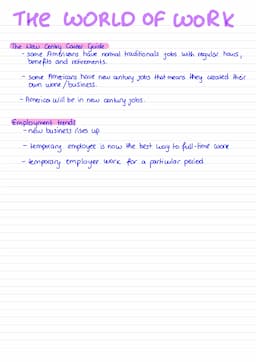 THE WORLD OF WORK
The New Century Career Guide
- some Americans have normal traditionals jobs with regular hours,
benefits and retirements.
- some Americans have new century jobs that means they created their
own work/business.
- America will be in new century jobs.
Employment trends
- new business rises up
- temporary employee is now the best way to full-time work
- temporary employer work for a particular period